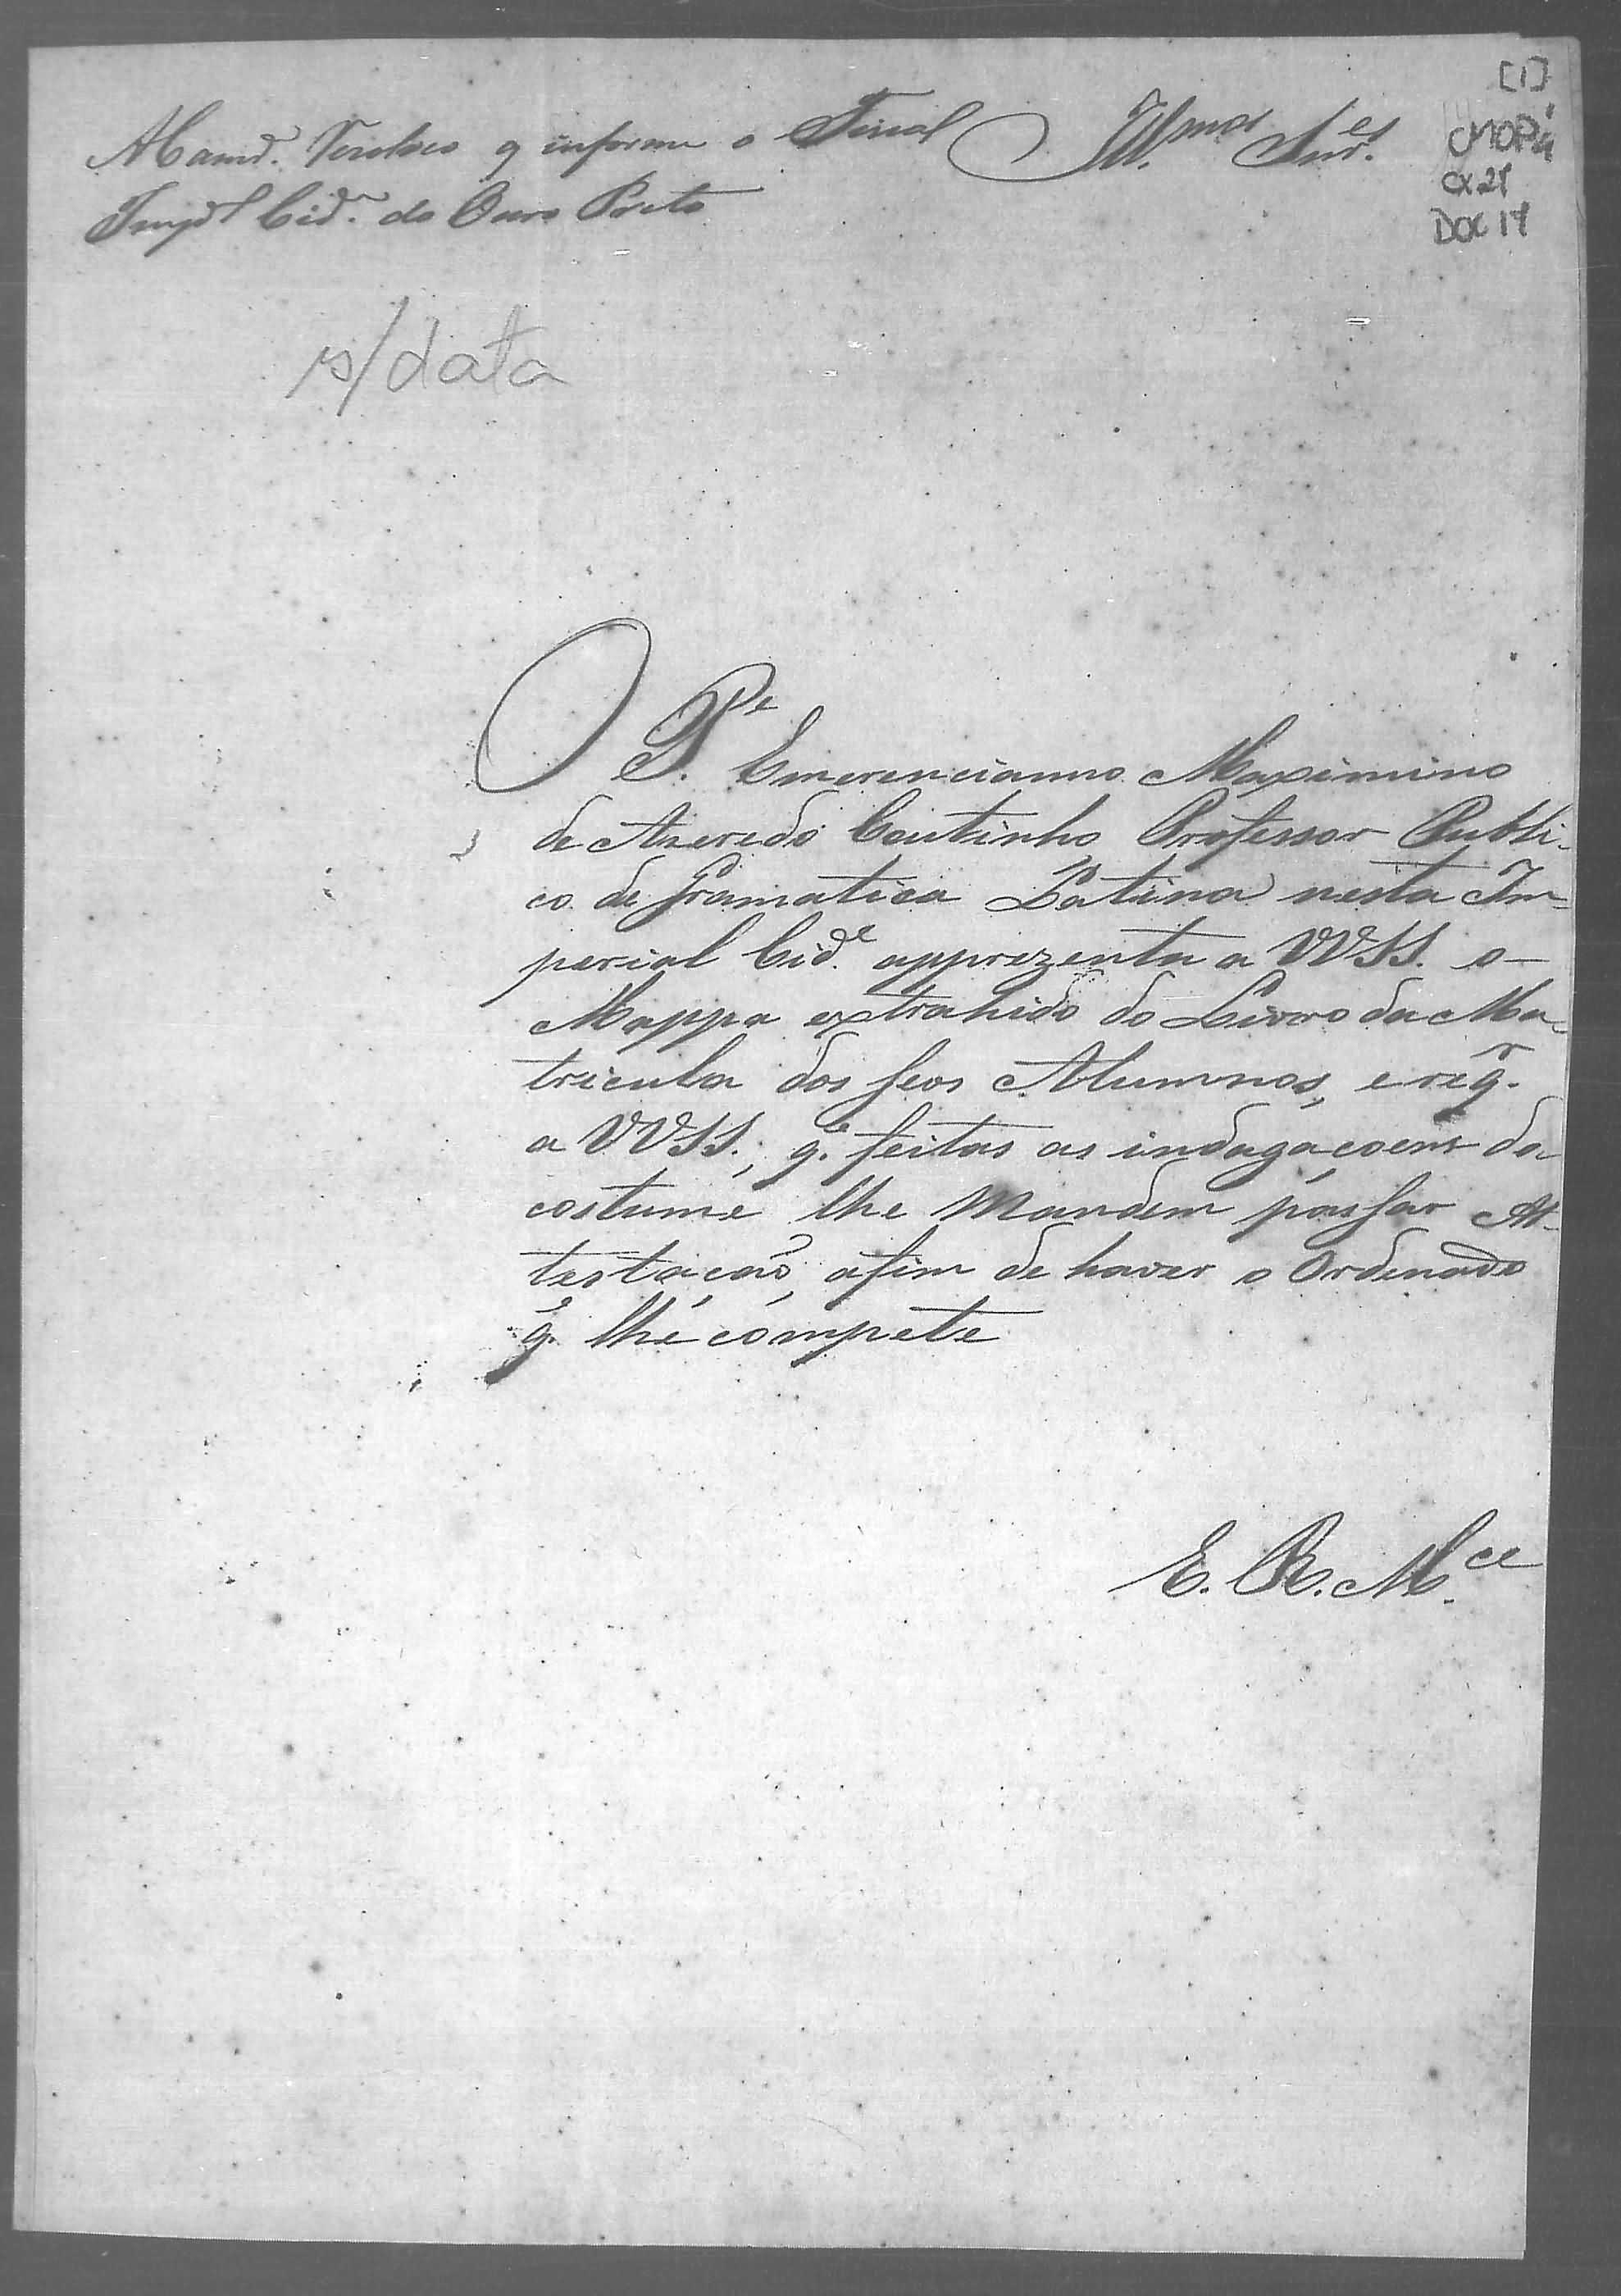 [1]
CMOP
CX 21
DOC 17
Illmos Snr.es
A Camr.ª q informe o Fiscal
Imp.l Cid.e do Ouro Preto
s/data
O P.e Emerencianno Maximino
de Azeredo Coutinho Professor Publi-
co de Gramatica Latina nesta Im-
perial Cid.e apprezenta a VVSS. o
Mappa extrahido do Livro da Ma-
tricula dos seos Alumnos, e req.r
a VVSS., q.e feitas as indagacoens do
costume lhe Mandem passar At-
testacaõ, afim de haver o Ordenado
q.e lhe compete
E. R. M.ce